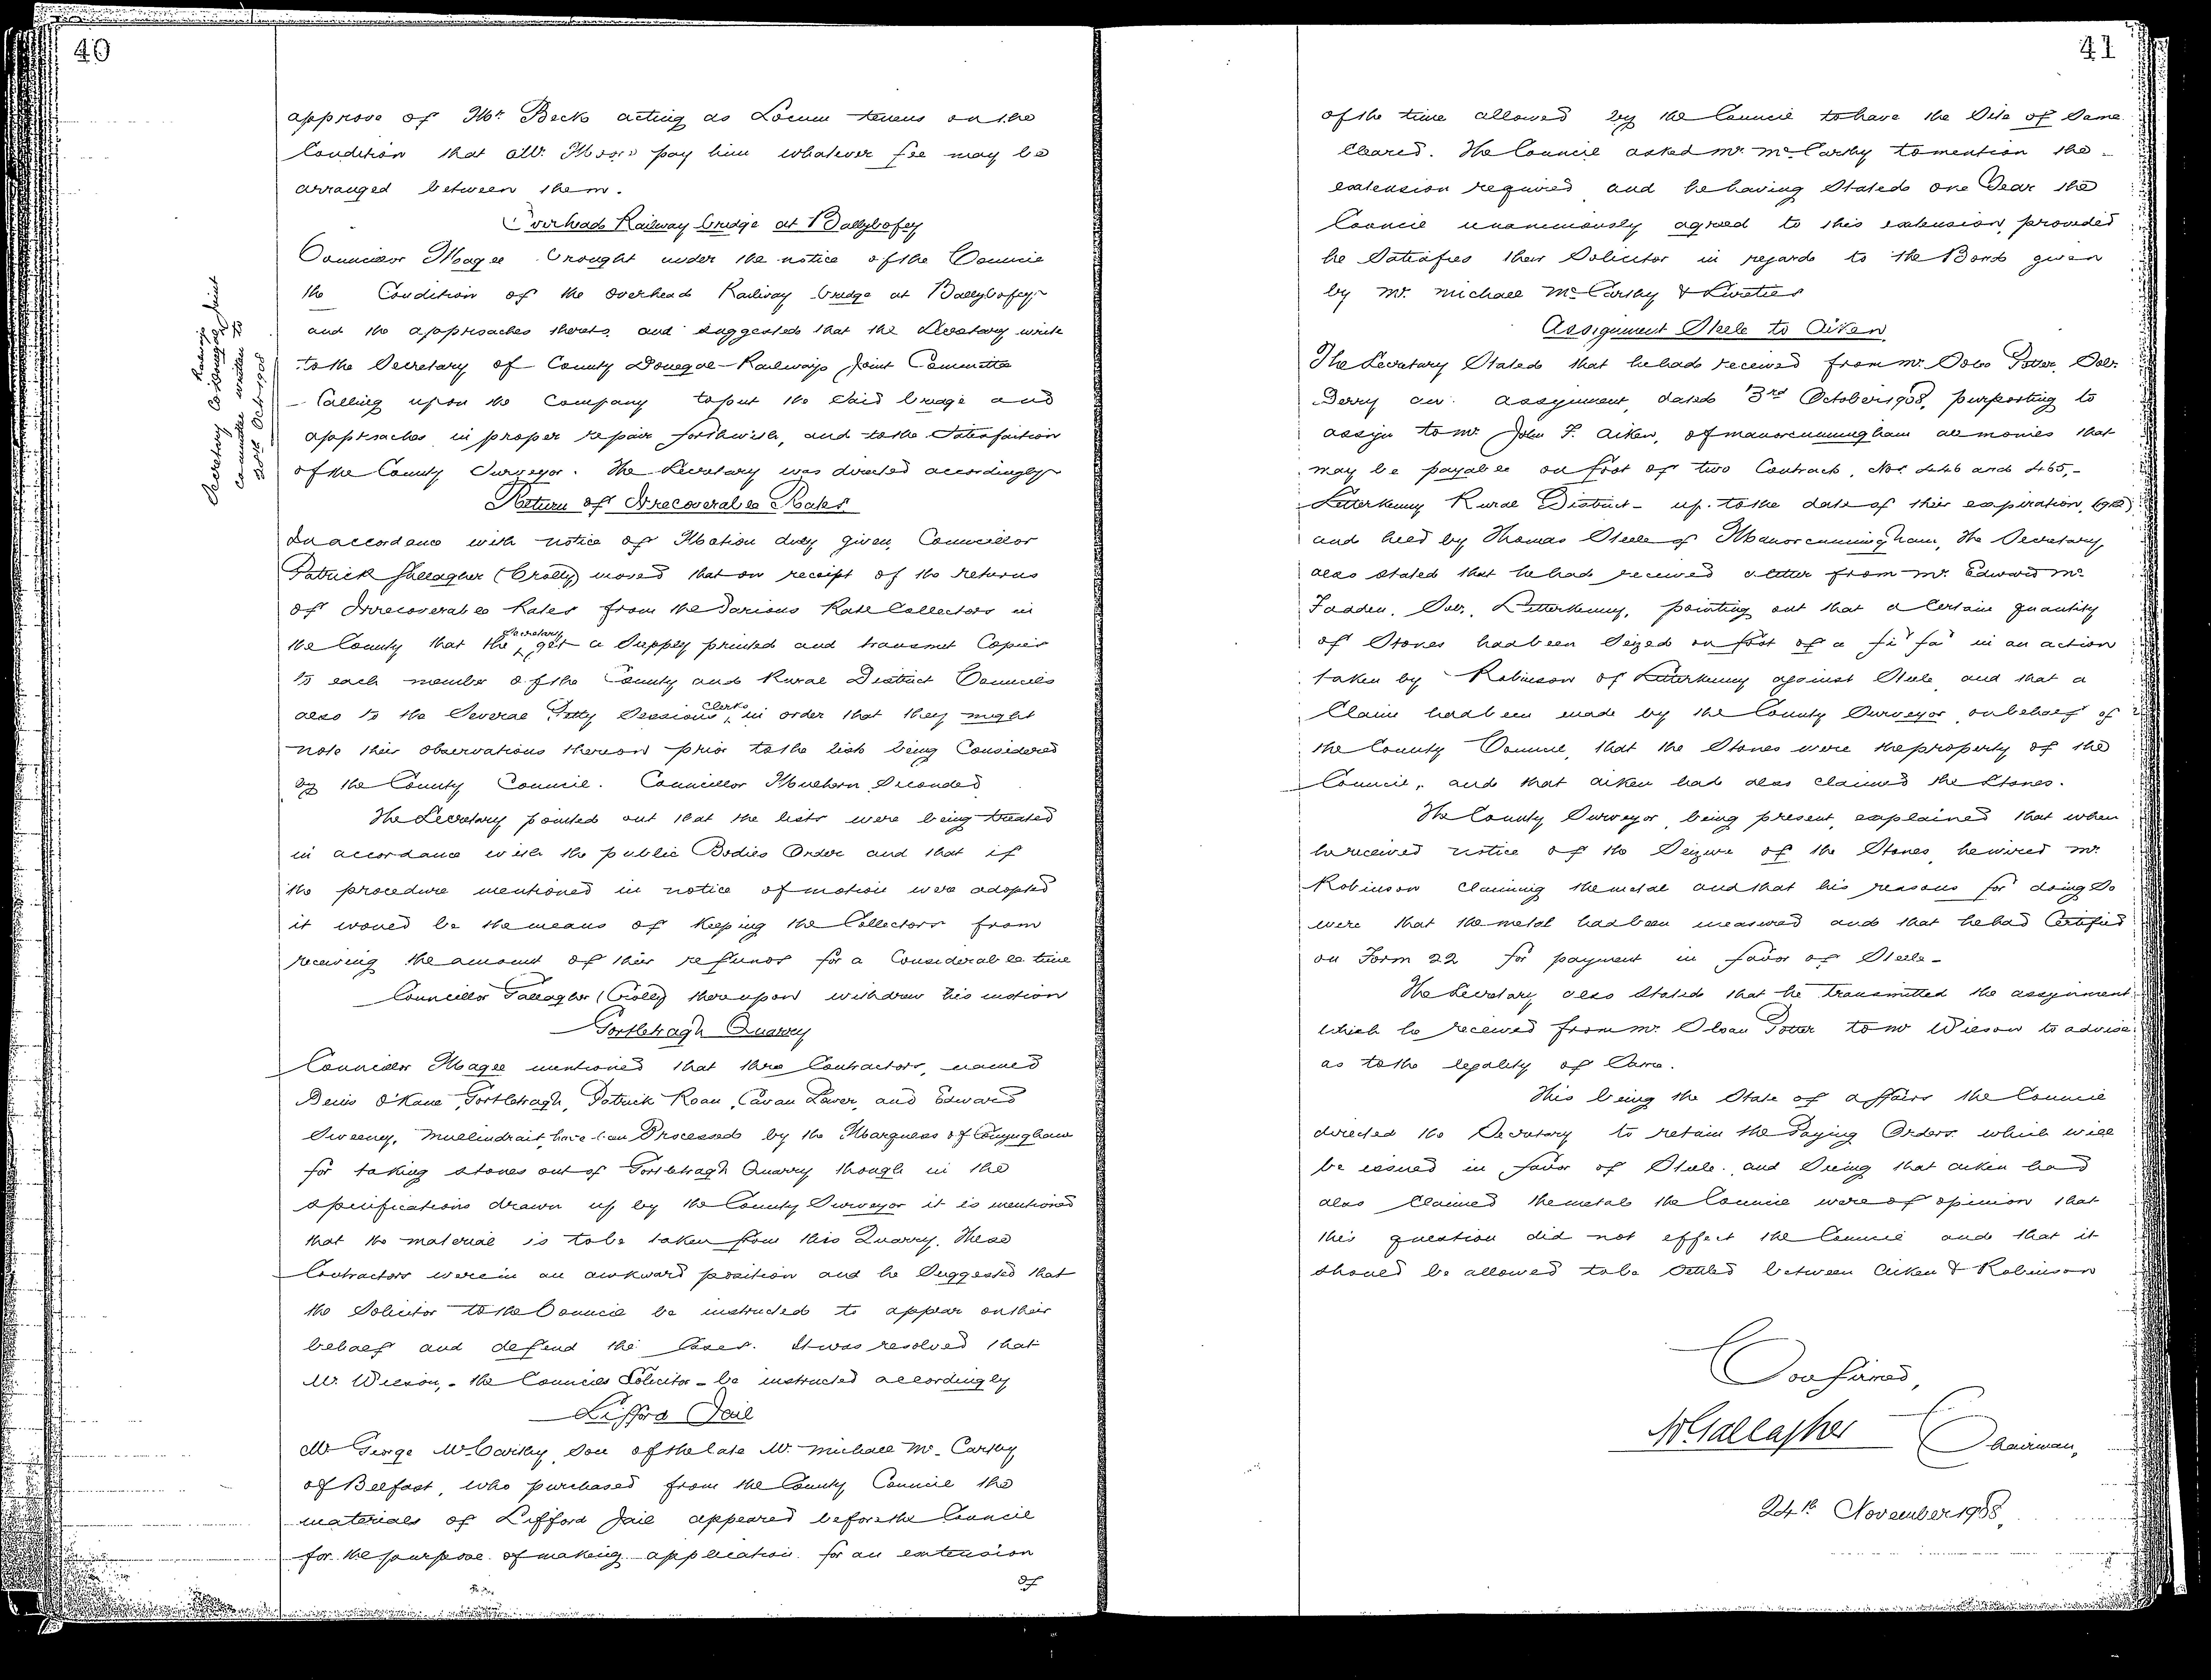 40
approve of Mr Beck acting as Locum tenens on the
Condition that Mr. Moore pay him whatever fee may be
arranged between them.
Overhead Railway bridge at Ballybofey
Councillor Magee brought under the notice of the Council
the Condition of the overhead Railway bridge at Ballybofey
and the approaches thereto, and suggested that the Secretary write
to the Secretary of County Donegal Railways Joint Committee
Calling upon the Company to put the said bridge and
approaches in proper repair forthwith, and to the Satisfaction
of the County Surveyor. The Secretary was directed accordingly
Secretary Co Donegal Railways Joint
Committee written to
30th Oct 1908
Return of Irrecoverable Rates
In accordance with notice of Motion duly given, Councillor
Patrick Gallagher (Crolly) moved that on receipt of the returns
of Irrecoverable Rates from the various Rate Collectors in
the County that the Secretary get a Supply printed and transmit Copies
to each member of the County and Rural District Councils
also to the Several Petty Sessions Clerks, in order that they might
note their observations thereon prior to the lists being Considered
by the County Council. Councillor Mulhern Seconded
The Secretary pointed out that the lists were being treated
in accordance with the public Bodies Order and that if
the procedure mentioned in notice of motion were adopted
it would be the means of keeping the Collectors from
receiving the amount of their refunds for a Considerable time
Councillor Gallagher (Crolly) thereupon withdrew his motion
Gortletragh Quarry
Councillor Magee mentioned that three Contractors, named
Denis O'Kane, Gortletragh, Patrick Roan, Cavan Lower, and Edward
Sweeney, Mullindrait, have been Processed by the Marquess of Conyngham
for taking stones out of Gortletragh Quarry though in the
specifications drawn up by the County Surveyor it is mentioned
that the material is to be taken from this Quarry. These
Contractors were in an awkward position and he Suggested that
the Solicitor to the Council be instructed to appear on their
behalf and defend the Cases. It was resolved that
Mr. Wilson, - the Councils Solicitor - be instructed accordingly
Lifford Jail
Mr George McCarthy, Son of the late Mr. Michael McCarthy
of Belfast, who purchased from the County Council the
materials of Lifford Jail appeared before the Council
for the purpose of making application for an extension
of
41
of the time allowed by the Council to have the Site of Same
Cleared. The Council asked Mr. McCarthy to mention the
extension required and he having Stated one Year the
Council unanimously agreed to this extension, provided
he Satisfies their Solicitor in regard to the Bond given
by Mr. Michael McCarthy & Sureties
Assignment Steele to Aiken
The Secretary Stated that he had received from Mr. Sloan Potter, Solr.
Derry an assignment, dated 3rd October 1908, purporting to
assign to Mr John F. Aiken, of Manorcunningham all monies that
may be payable on foot of two Contracts, Nos 446 and 465,-
Letterkenny Rural District - up to the date of their expiration,
and held by Thomas Steele of Manorcunningham, The Secretary
also stated that he had received a letter from Mr. Edward Mc
Fadden, Solr. Letterkenny, pointing out that a Certain quantity
of Stones had been Seized on foot of a fi fa in an action
taken by Robinson of Letterkenny against Steele and that a
Claim had been made by the County Surveyor, on behalf of
the County Council, that the Stones were the property of the
Council, and that Aiken had also claimed the Stones.
The County Surveyor, being present, explained that when
he received notice of the Seizure of the Stones he wired Mr.
Robinson Claiming the metal and that his reasons for doing So
were that the metal had been measured and that he had Certified
on Form 22 for payment in favor of Steele -
The Secretary also Stated that he transmitted the assignment
which he received from Mr. Sloan Potter to Mr Wilson to advise
as to the legality of Same.
This being the State of affairs the Council
directed the Secretary to retain the Paying Orders which will
be issued in favor of Steele, and Seeing that Aiken had
also Claimed the metal the Council were of opinion that
this question did not effect the Council and that it
should be allowed to be Settled between Aiken & Robinson
Confirmed,
Gallagher Chairman,
24th November 1908,